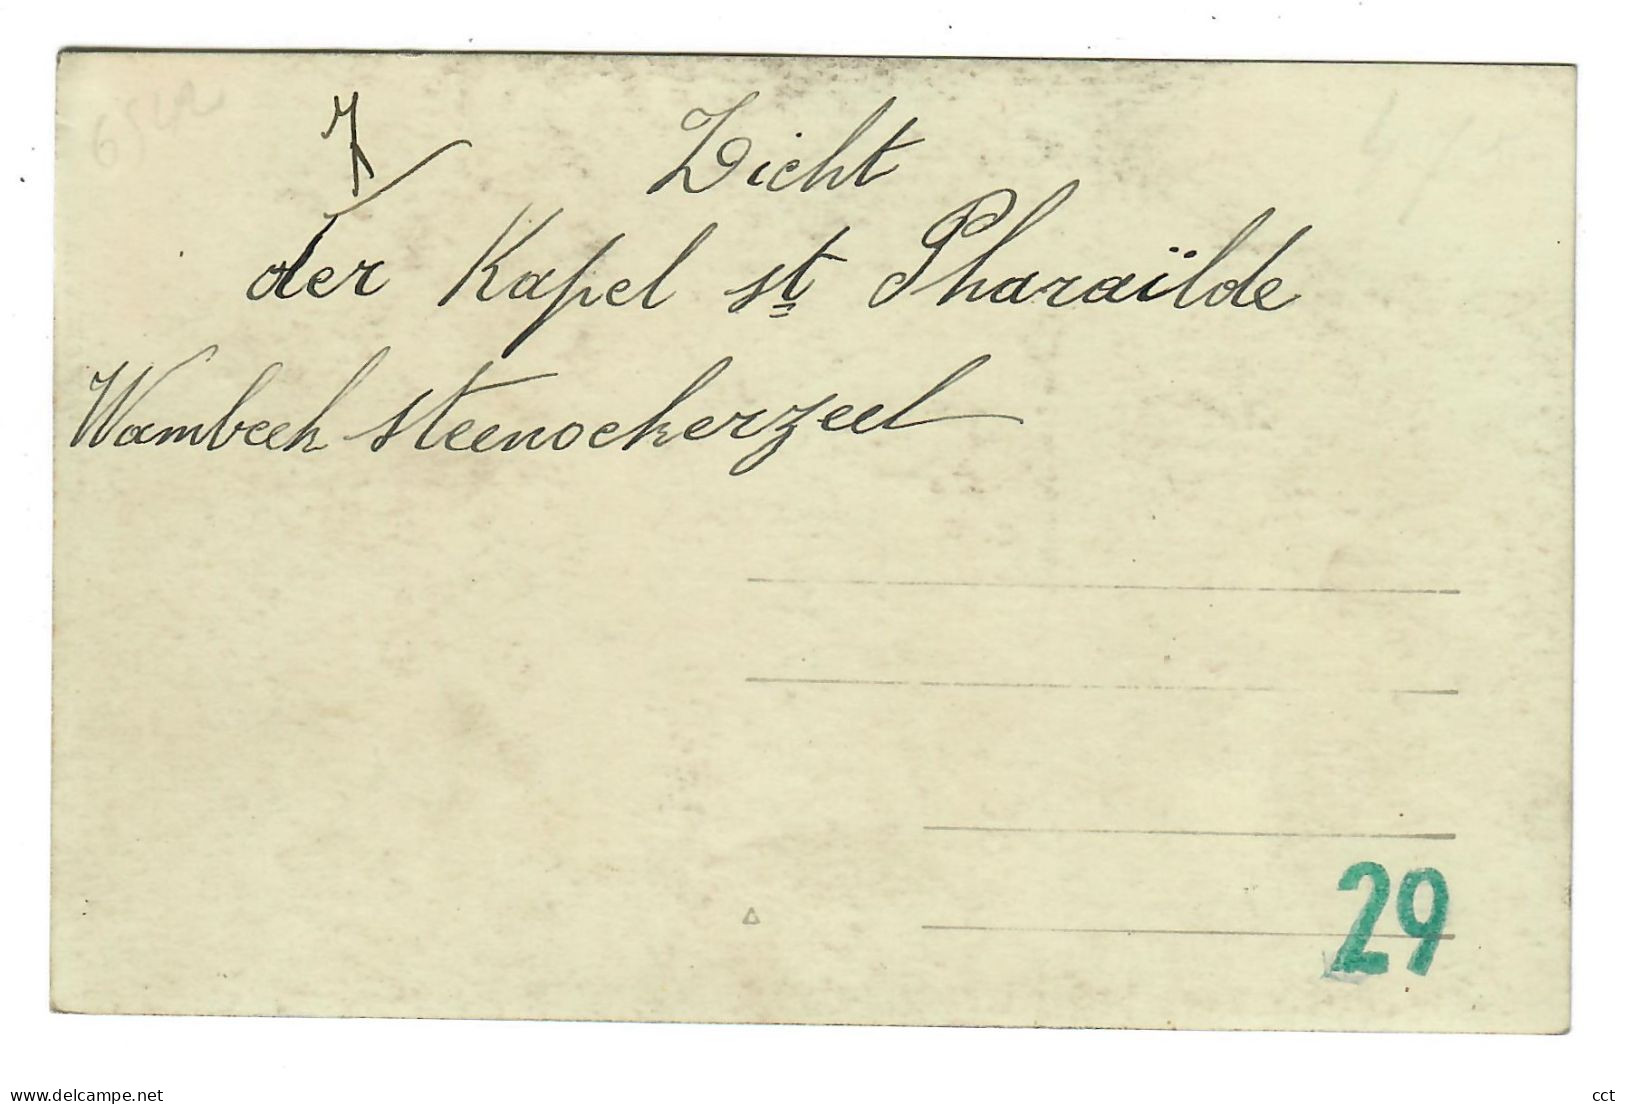 Zicht
der Kapel st Pharaïlde
Wambeek Steenockerzeel
29
delcampe.net
cct